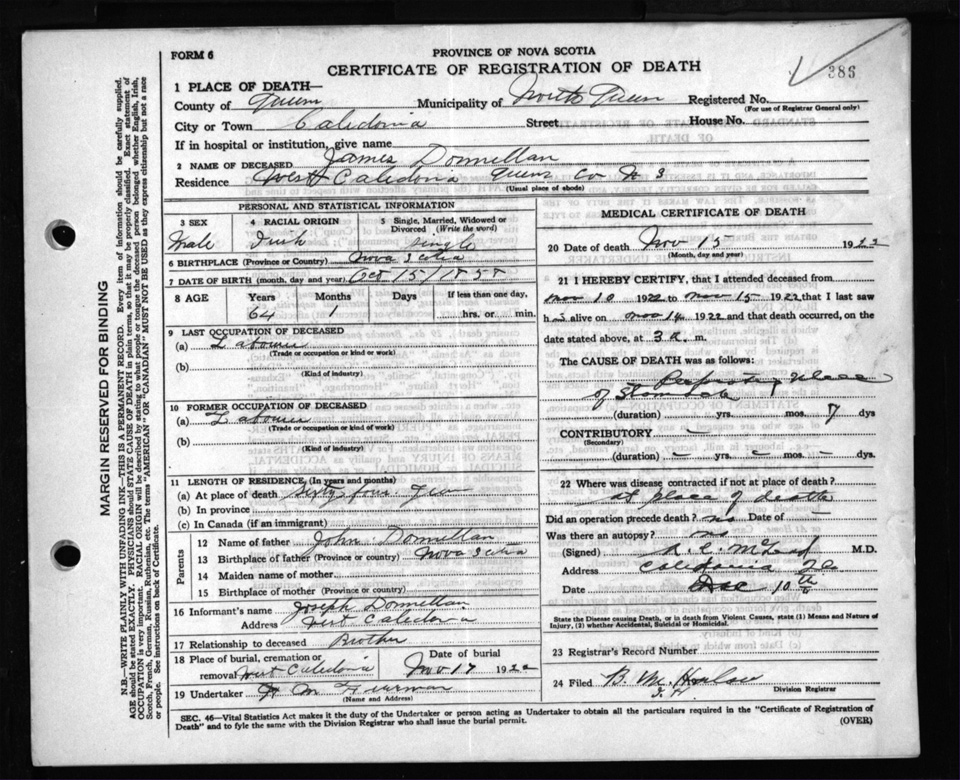 FORM 6
PROVINCE OF NOVA SCOTIA
CERTIFICATE OF REGISTRATION OF DEATH
386
1 PLACE OF DEATH—
County of Queens Municipality of North Queen Registered No.
(For use of Registrar General only)
City or Town Caledonia Street House No.
If in hospital or institution, give name
2 NAME OF DECEASED James Donnellan
Residence West Caledonia Queens Co N S
(Usual place of abode)
PERSONAL AND STATISTICAL INFORMATION
3 SEX 4 RACIAL ORIGIN 5 Single, Married, Widowed or Divorced (Write the word)
Male Irish Single
6 BIRTHPLACE (Province or Country) Nova Scotia
7 DATE OF BIRTH (month, day and year) Oct 15/1858
8 AGE Years Months Days If less than one day,
64 1 hrs. or min.
9 LAST OCCUPATION OF DECEASED
(a) Laborer
(Trade or occupation or kind of work)
(b)
(Kind of industry)
10 FORMER OCCUPATION OF DECEASED
(a) Laborer
(Trade or occupation or kind of work)
(b)
(Kind of industry)
11 LENGTH OF RESIDENCE (In years and months)
(a) At place of death Sixty four
(b) In province
(c) In Canada (if an immigrant)
Parents
12 Name of father John Donnellan
13 Birthplace of father (Province or country) Nova Scotia
14 Maiden name of mother
15 Birthplace of mother (Province or country)
16 Informant's name Joseph Donnellan
Address West Caledonia
17 Relationship to deceased Brother
18 Place of burial, cremation or removal West Caledonia Date of burial Nov 17 1922
19 Undertaker
(Name and Address)
MEDICAL CERTIFICATE OF DEATH
20 Date of death Nov 15 1922
(Month, day and year)
21 I HEREBY CERTIFY, that I attended deceased from
Nov 10 1922 to Nov 15 1922 that I last saw
h alive on Nov 14 1922 and that death occurred, on
date stated above, at 3 a. m.
The CAUSE OF DEATH was as follows:
of Stomach
(duration) yrs. mos. 7 dys
CONTRIBUTORY –
(Secondary)
(duration) – yrs. – mos. – dys.
22 Where was disease contracted if not at place of death?
at place of death
Did an operation precede death? no Date of –
Was there an autopsy? no
(Signed) M.D.
Address Caledonia
Date Dec 10th
State the Disease causing Death, or in death from Violent Causes, state (1) Means and Nature of Injury, (2) whether Accidental, Suicidal or Homicidal.
23 Registrar's Record Number
24 Filed
Division Registrar
SEC. 46—Vital Statistics Act makes it the duty of the Undertaker or person acting as Undertaker to obtain all the particulars required in the "Certificate of Registration of
Death" and to fyle the same with the Division Registrar who shall issue the burial permit.
(OVER)
MARGIN RESERVED FOR BINDING
N.B.—WRITE PLAINLY WITH UNFADING INK—THIS IS A PERMANENT RECORD. Every item of information should be carefully supplied.
AGE should be stated EXACTLY. PHYSICIANS should STATE CAUSE OF DEATH in plain terms, so that it may be properly classified. Exact statement of
OCCUPATION is very important. RACIAL ORIGIN will be described by stating to what people or tongue the deceased person belonged whether English, Irish,
Scotch, French, German, Russian, Ruthenian, etc. The terms "AMERICAN" OR "CANADIAN" MUST NOT BE USED as they express citizenship but not a race
or people. See instructions on back of Certificate.